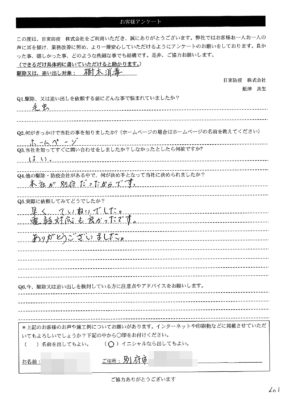 お客様アンケート
この度は、日東防疫 株式会社をご利用いただき、誠にありがとうございます。弊社ではお客様お一人お一人の
声に耳を傾け、業務改善に努め、より一層安心していただけるようにアンケートのお願いをしております。良か
った事、嬉しかった事、どのような些細な事でも結構です。是非、ご協力お願いします。
(できるだけ具体的に書いていただけると助かります。)
日東防疫 株式会社
駆除又は、追い出し対象: 樹木消毒
Q1.駆除、又は追い出しを依頼する前にどんな事で悩まれていましたか?
毛虫
Q2.何がきっかけで当社の事を知りましたか?(ホームページの場合はホームページの名前を教えてください)
ホームページ
Q3.当社を知ってすぐに問い合わせをしましたか?しなかったとしたら何故ですか?
はい。
Q4.他の駆除・防疫会社がある中で、何が決め手となって当社に決められましたか?
本社が別府だったからです。
Q5.実際に依頼してみてどうでしたか?
早く、ていねいでした。
電話対応も良かったです。
ありがとうございました。
Q6.今、駆除又は追い出しを検討している方に注意点やアドバイスをお願いします。
*上記のお客様のお声や施工例についてお願いがあります。インターネットや印刷物などに掲載させていただ
いてもよろしいでしょうか?下記の中から〇印をお付けください。
( )名前を出してもよい。 (〇)イニシャルなら出してもよい。
お名前: ご住所: 別府市
ご協力ありがとうございます